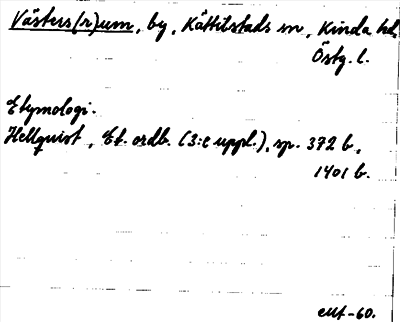 Västers(r)um, by, Kättilstads sn, Kinda hd,
Östg. l.
Etymologi.
Hellquist, Et. ordb. (3:e uppl.), sp. 372 b,
1401 b.
-60.